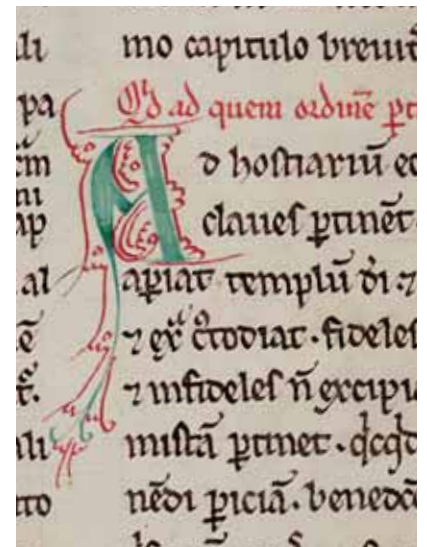 pa
ap
al
ē
mo capitulo breuit
Qd ad quem ordinē ꝑt
Ad hostiariū ec
claues ꝑtinēt
aꝑiat templū di ⁊
⁊ exͣ cͦtodiat. fideles
⁊ infideles n̄ excipi
mistā ꝑtinet. qͥcqͥd
nēdi ꝑiciā. benedcō